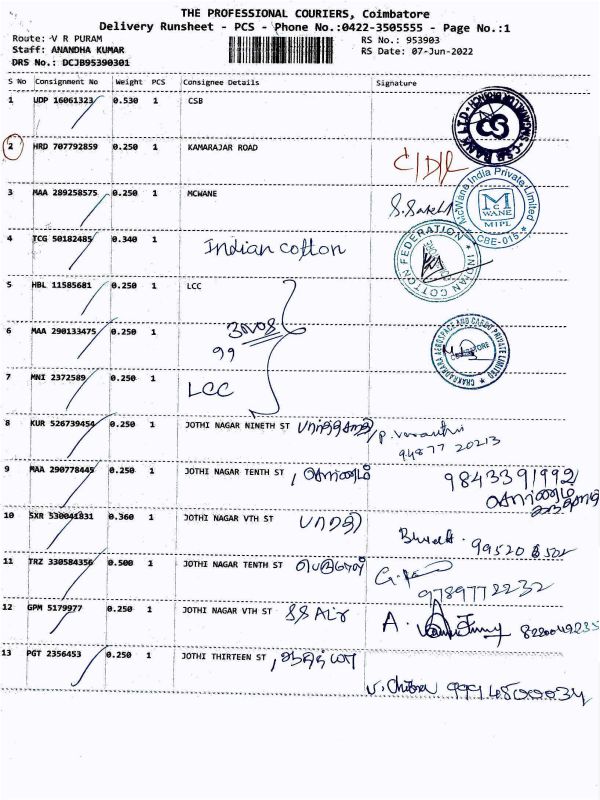 THE PROFESSIONAL COURIERS, Coimbatore
Delivery Runsheet - PCS - Phone No.:0422-3505555 - Page No.:1
Route: V R PURAM RS No.: 953903
Staff: ANANDHA KUMAR RS Date: 07-Jun-2022
DRS No.: DCJB95390301
S No Consignment No Weight PCS Consignee Details Signature
1 UDP 16061323 0.530 1 CSB
CSB BANK LTD
2 HRD 707792859 0.250 1 KAMARAJAR ROAD
3 MAA 289258575 0.250 1 MCWANE
McWane India Private Limited
McWANE
MIPL
CBE-015
4 TCG 50182485 0.340 1 Indian cotton
INDIAN COTTON FEDERATION
5 HBL 11585681 0.250 1 LCC
6 MAA 290133475 0.250 1 99
CHAKRADHARA AEROSPACE AND CARGO PRIVATE LIMITED
COIMBATORE
7 MNI 2372589 0.250 1 LCC
8 KUR 526739454 0.250 1 JOTHI NAGAR NINETH ST
94877 20213
9 MAA 290778445 0.250 1 JOTHI NAGAR TENTH ST , 9843391992
10 SXR 530041831 0.360 1 JOTHI NAGAR VTH ST பாரதி
11 TRZ 330584356 0.500 1 JOTHI NAGAR TENTH ST
9789772232
12 GPM 5179977 0.250 1 JOTHI NAGAR VTH ST SS Air
A. 8220049235
13 PGT 2356453 0.250 1 JOTHI THIRTEEN ST ,
V. Chitra